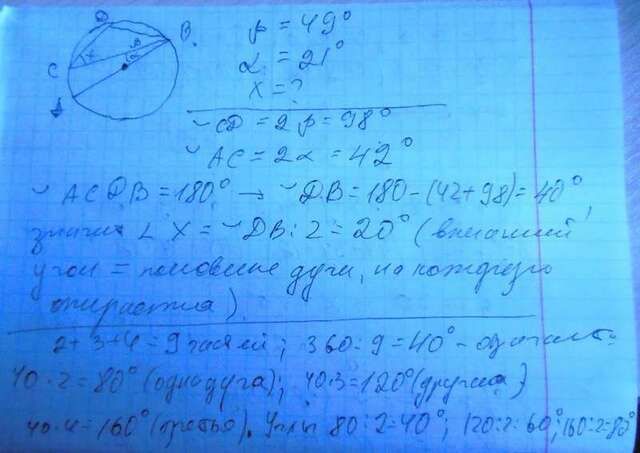 D
B
C
x
β
α
A
β = 49°
α = 21°
x = ?
◡ CD = 2β = 98°
◡ AC = 2α = 42°
◡ ACDB = 180° → ◡ DB = 180 - (42 + 98) = 40°
значит ∠ X = ◡ DB : 2 = 20° (
угол = половине дуги, на которую
опирается).
2 + 3 + 4 = 9 частей; 360 : 9 = 40° -
40 · 2 = 80° (одна дуга); 40 · 3 = 120° (другая)
40 · 4 = 160° (третья). Углы 80 : 2 = 40°; 120 : 2 = 60°; 160 : 2 = 80°